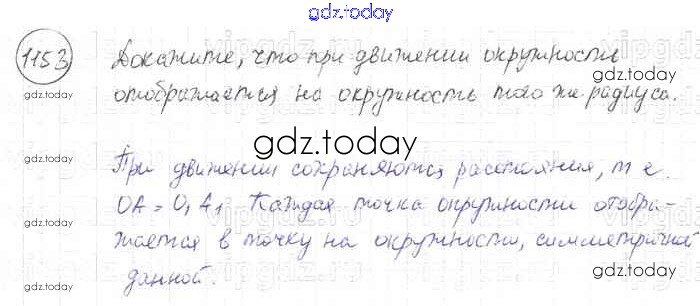 gdz.today
1153 Докажите, что при движении окружность
gdz.today
отображается на окружность того же радиуса.
gdz.today
gdz.today
При движении сохраняются расстояния, т е.
gdz.today
OA = O₁A₁ Каждая точка окружности отобра-
жается в точку на окружности, симметричной
gdz.today
данной.
gdz.today